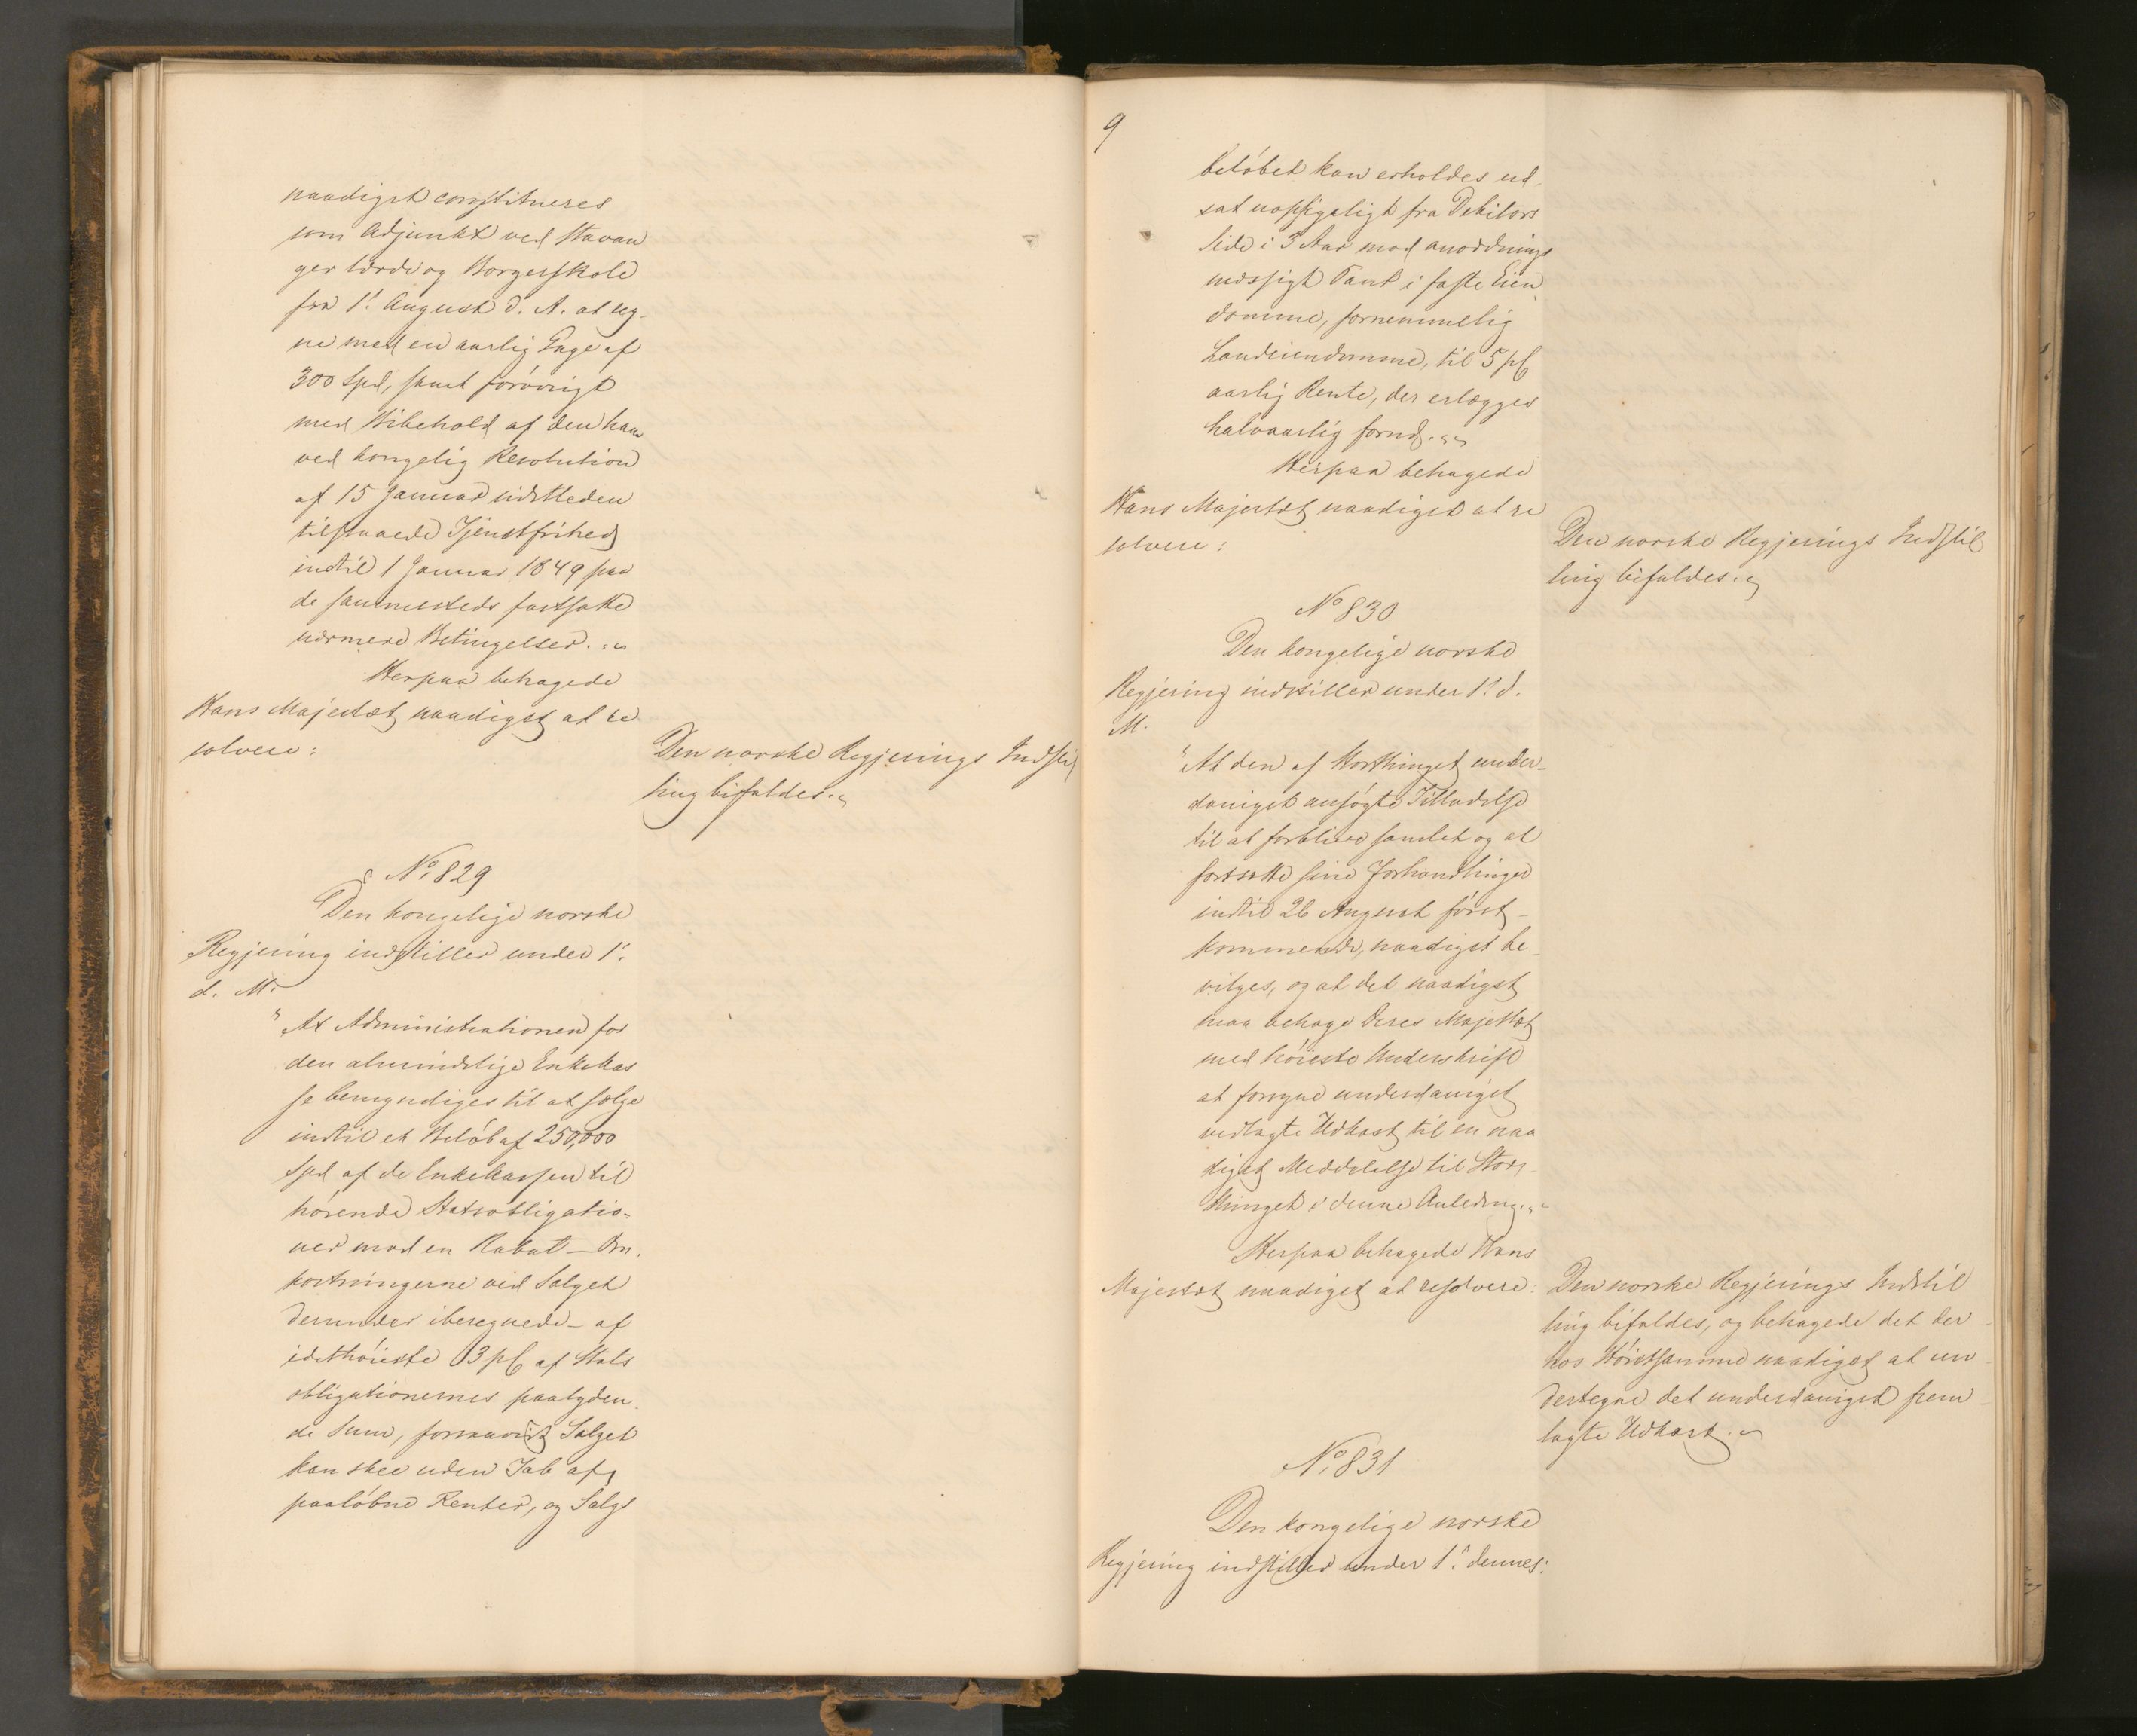 naadigst constitueres
som Adjunkt ved Stavan
ger lærde og Borgerskole
fra 1ste August d. A. at reg-
ne med en aarlig Gage af
300 Spd, samt forövrigt
med Bibehold af den ham
ved kongelig Resolution
af 15 Januar sidstleden
tilstaaede Tjenstfrihed
indtil 1 Januar 1849 paa
de sammesteds fastsatte
nærmere Betingelser."
Herpaa behagede
Hans Majestæt naadigst at re
solvere:
Den norske Regjerings Indstil
ling bifaldes.
No 829
Den kongelige norske
Regjering indstiller under 1ste
d. M.
"At Administrationen for
den almindelige Enkekas
se bemyndiges til at sælge
indtil et Belöb af 250,000
Spd af de Enkekassen til
hörende Statsobligatio-
ner mod en Rabat – Om-
kostningerne ved Salget
derunder iberegnede – af
idethöieste 3 pC af Stats
obligationernes paalyden
de Sum, forsaavidt Salget
kan skee uden Tab af
paalöbne Renter, og Salgs
9
belöbet kan erholdes ud-
sat uopsigeligt fra Debitors
Side i 3 Aar mod anordnings
mæssigt Pant i faste Eien
domme, fornemmelig
Landeiendomme, til 5 pC
aarlig Rente, der erlægges
halvaarlig forud."
Herpaa behagede
Hans Majestæt naadigst at re
solvere:
Den norske Regjerings Indstil
ling bifaldes.
No 830
Den kongelige norske
Regjering indstiller under 1ste d.
M.
"At den af Storthinget under-
danigst ansögte Tilladelse
til at forblive samlet og at
fortsætte sine Forhandlinger
indtil 26 August först-
kommende, naadigst be-
vilges, og at det naadigst
maa behage Deres Majestæt
med höieste Underskrift
at forsyne underdanigst
vedlagte Udkast til en naa
digst Meddelelse til Stor-
thinget i denne Anledning."
Herpaa behagede Hans
Majestæt naadigst at resolvere:
Den norske Regjerings Indstil
ling bifaldes, og behagede det der-
hos Höistsamme naadigst at un-
dertegne det underdanigst frem-
lagte Udkast.
No 831
Den kongelige norske
Regjering indstiller under 1ste dennes: